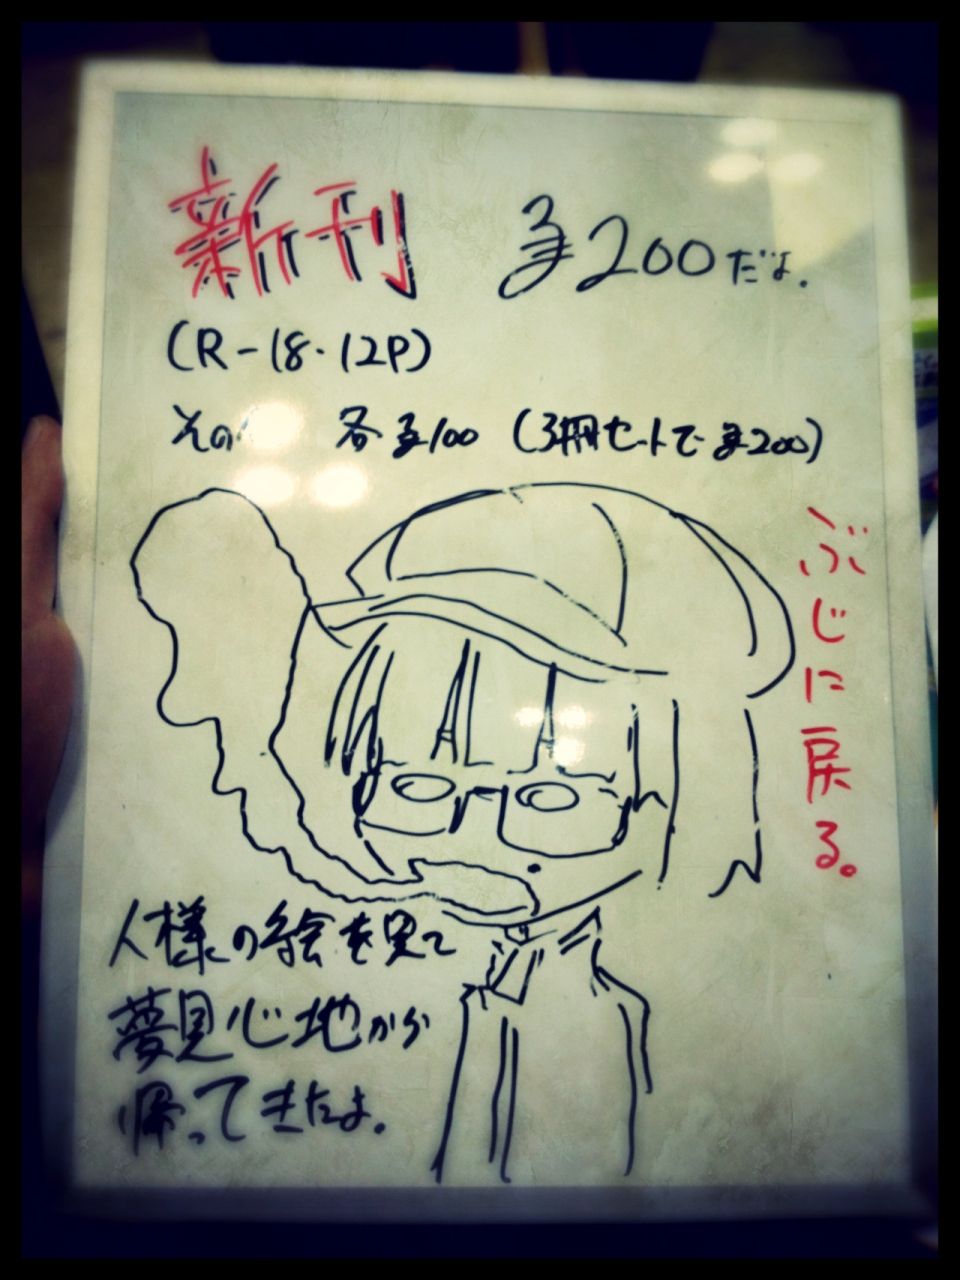 新刊 ¥200だよ.
(R-18・12P)
その 各¥100 (3冊セットで¥200)
ぶじに戻る。
人様の絵を見て
夢見心地から
帰ってきたよ.